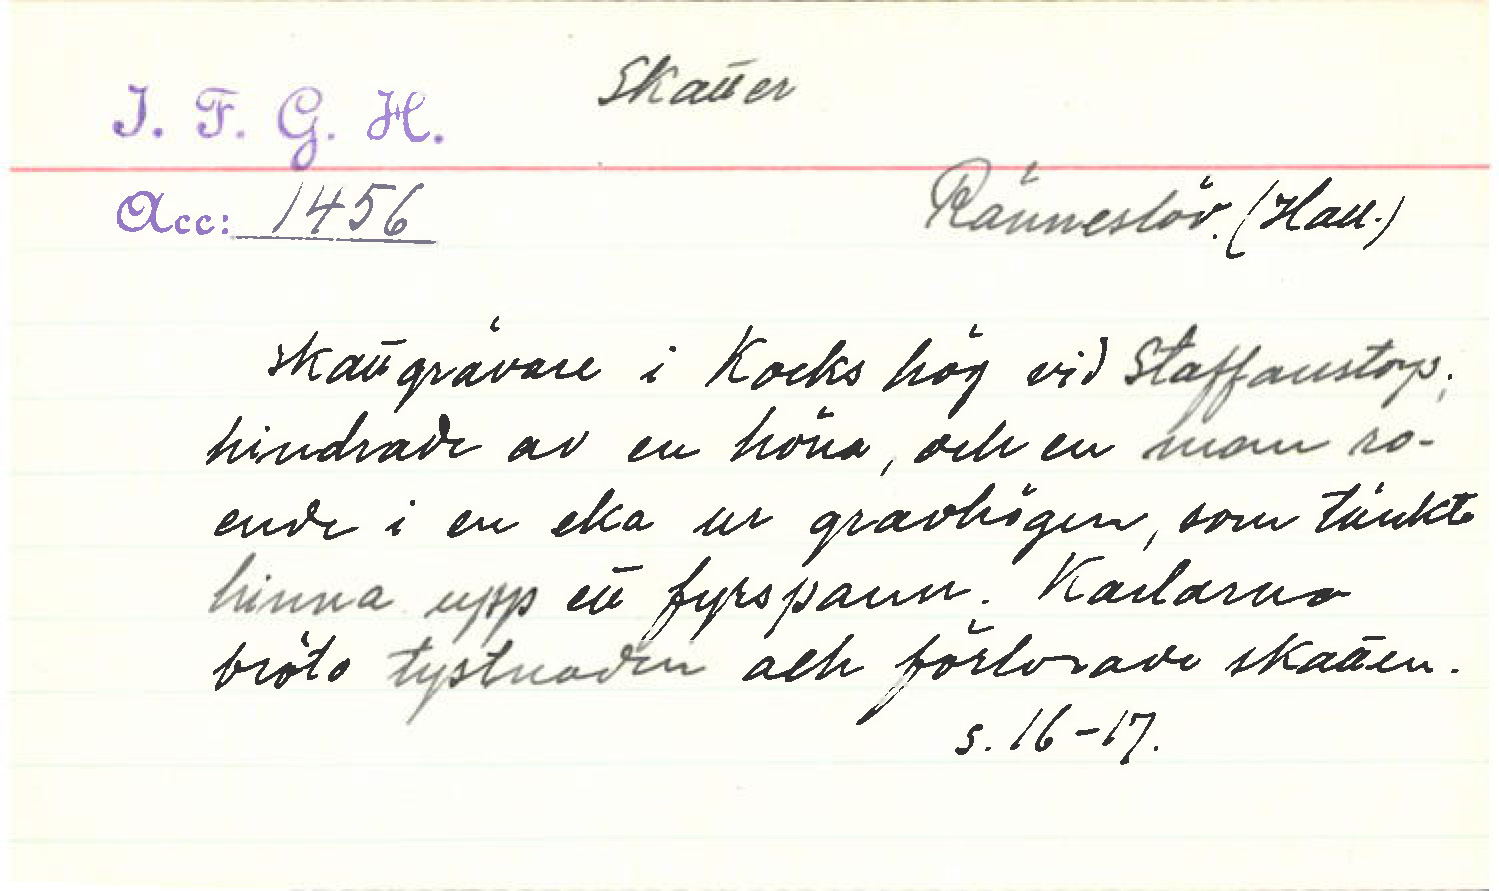 Skatter
I. F. G. H.
Acc: 1456
Ränneslöv. (Hall.)
Skattgrävare i Kocks hög vid Staffanstorp,
hindrade av en höna, och en man ro-
ende i en eka ur gravhögen, som tänkte
hinna upp ett fyrspann. Karlarna
bröto tystnaden och förlorade skatten.
s. 16-17.